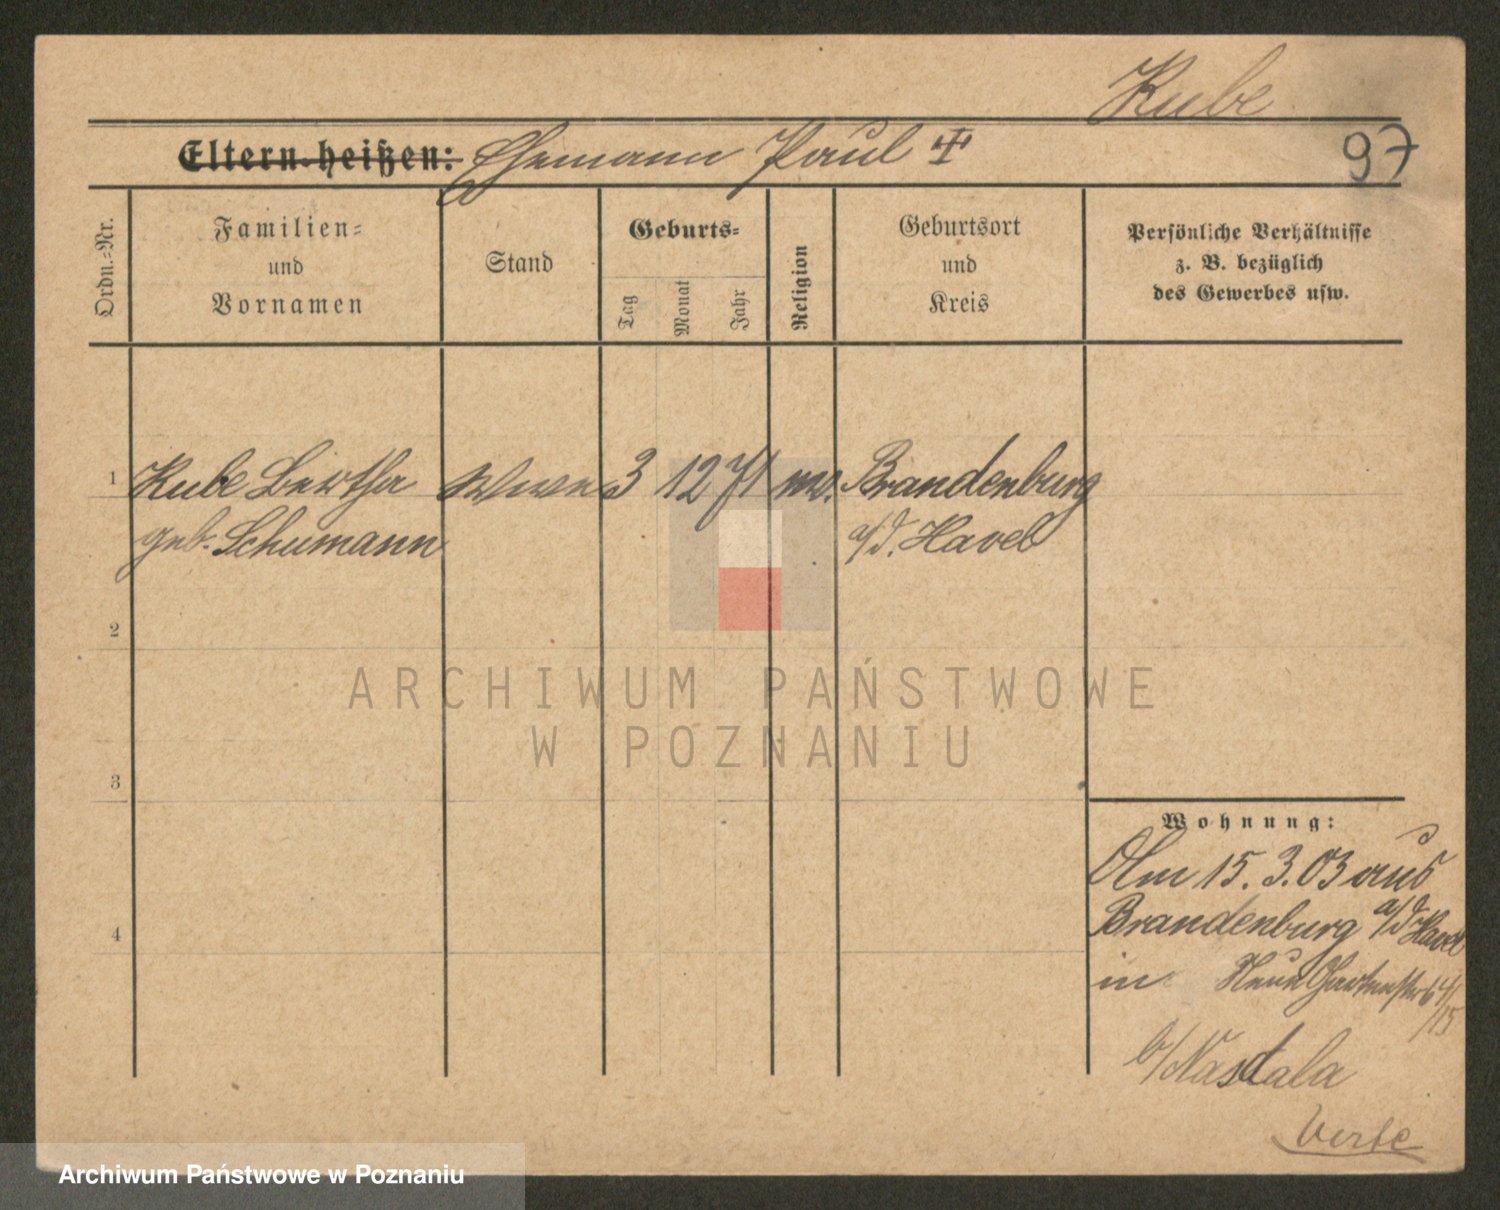 Kube
Eltern heißen: Ehemann Paul
97
Ordn.-Nr.
Familien-
und
Vornamen
Stand
Geburts-
Tag
Monat
Jahr
Religion
Geburtsort
und
Kreis
Persönliche Verhältnisse
z. B. bezüglich
des Gewerbes usw.
1
Kube Bertha
3
12
71
Brandenburg
geb. Schumann
a/d. Havel
2
ARCHIWUM PAŃSTWOWE
W POZNANIU
3
Wohnung:
Am 15. 3. 03 aus
Brandenburg a/d Havel
4
in Neue Gartenstr
b/Nastala
Archiwum Państwowe w Poznaniu